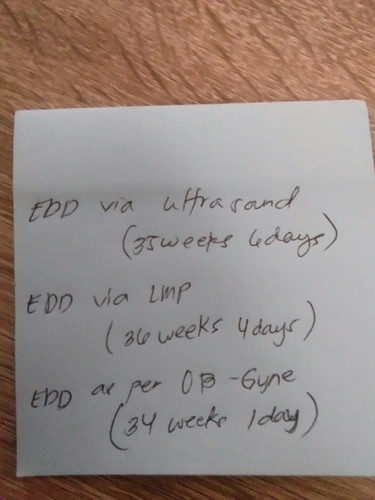 EDD via ultrasound
(35weeks 6days)
EDD via LMP
(36 weeks 4days)
EDD as per OB-Gyne
(34 weeks 1day)